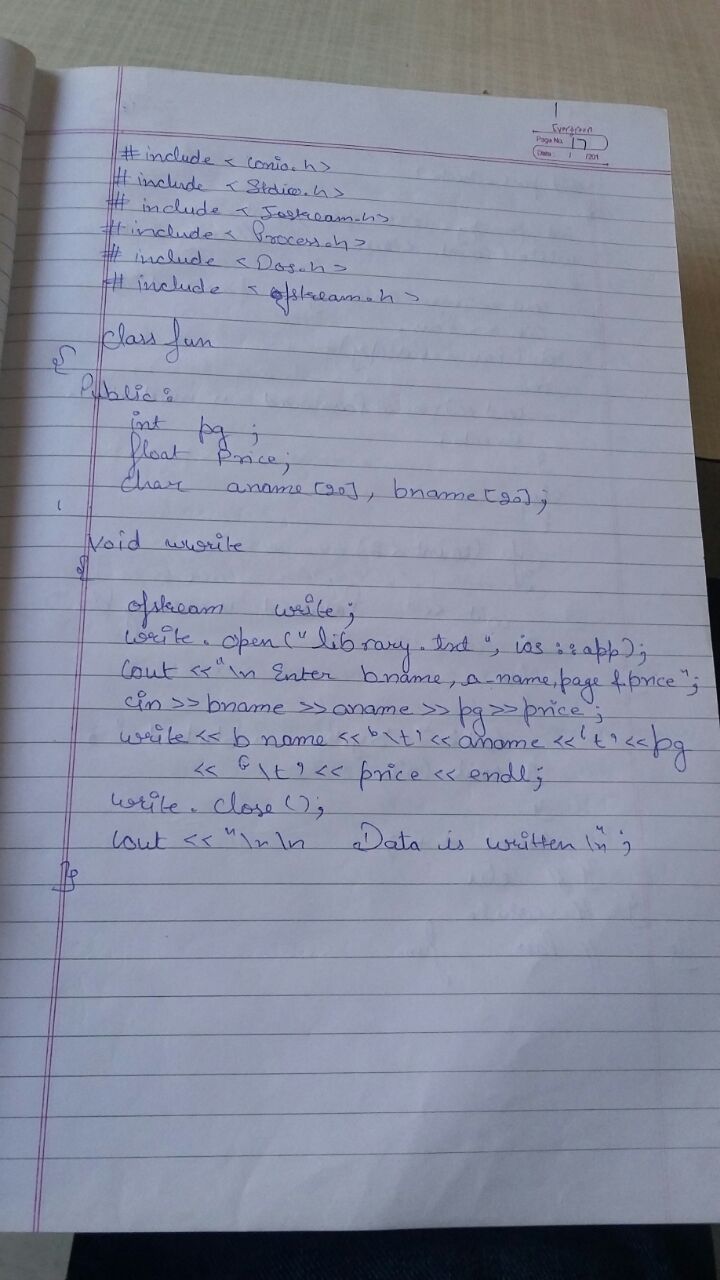 Evergreen
Page No. 17
Date: / /201
# include < Conio.h>
# include < Stdio.h>
# include < Iostream.h>
# include < Process.h>
# include < Dos.h>
# include < ofstream.h>
class fun
{
Public:
int pg ;
float Price;
char aname [20], bname [20];
Void wwrite
{
ofstream write;
write. open ("library.txt", ios ::app);
Cout <<"\n Enter bname, a-name, page & price";
cin >>bname >>aname >>pg >>price;
write << b name << '\t' << aname << 't' << pg
<< '\t' << price << endl;
write. close ();
Cout << "\n\n Data is written \n";
}